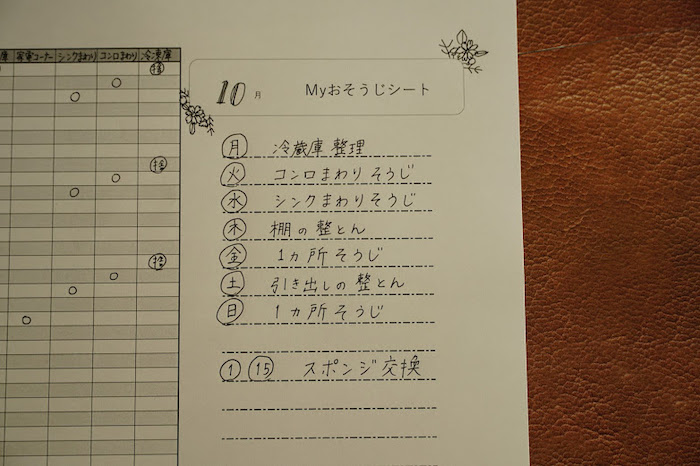 庫 家電コーナー シンクまわり コンロまわり 冷凍庫
捨
捨
捨
10月 Myおそうじシート
月 冷蔵庫整理
火 コンロまわりそうじ
水 シンクまわりそうじ
木 棚の整とん
金 1ヵ所そうじ
土 引き出しの整とん
日 1ヵ所そうじ
1 15 スポンジ交換